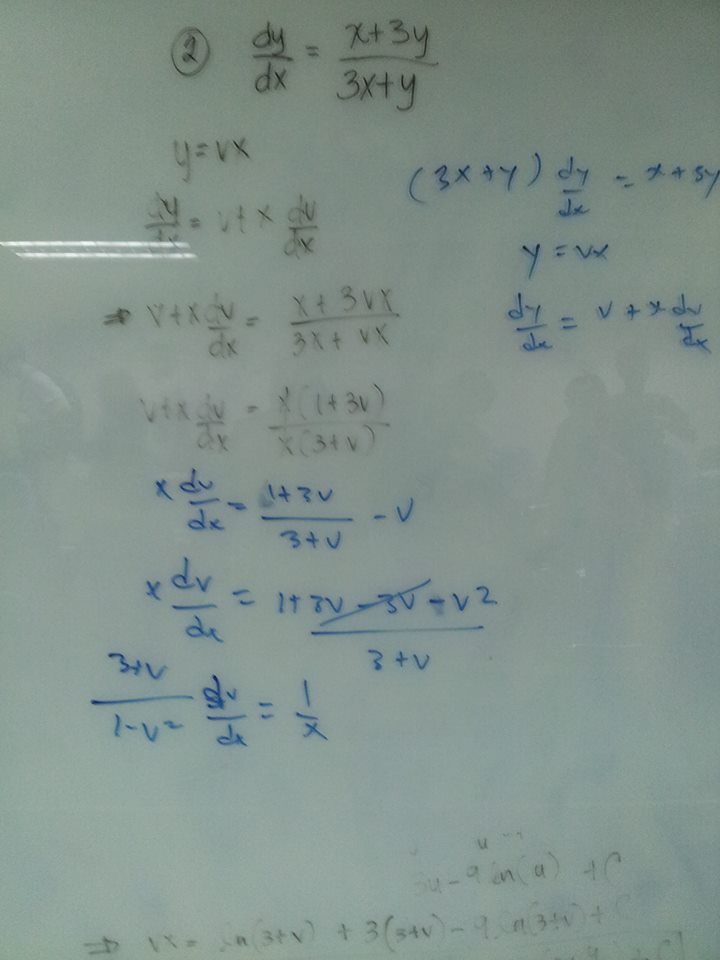 ② dy/dx = x+3y / 3x+y
y = vx
dy/dx = v+x dv/dx
⇒ v+x dv/dx = x+3vx / 3x+vx
v+x dv/dx = x(1+3v) / x(3+v)
x dv/dx = 1+3v / 3+v - v
x dv/dx = 1+3v-3v-v2 / 3+v
3+v / 1-v² dv/dx = 1/x
(3x+y) dy/dx = x+3y
y = vx
dy/dx = v + x dv/dx
u
3u-9 ln(u) + C
⇒ vx = ln(3+v) + 3(3+v) - 9 ln(3+v) +